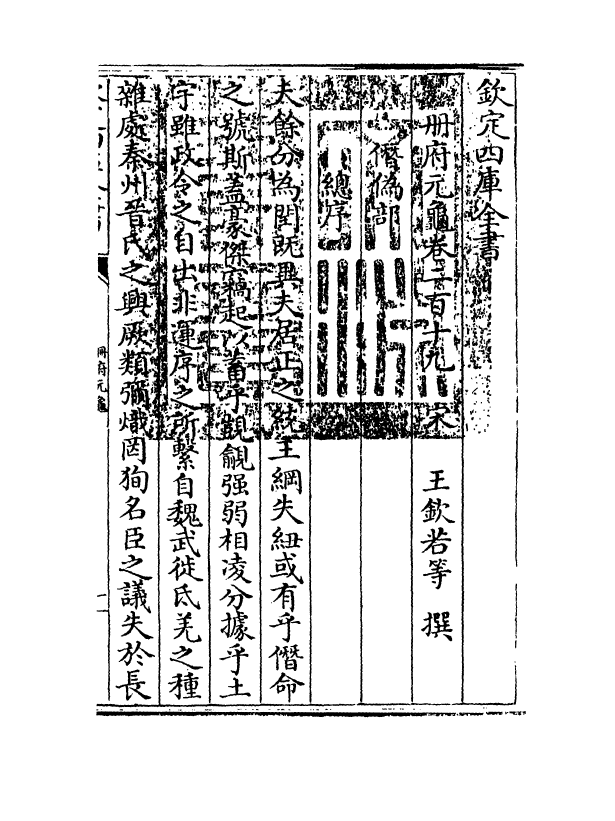 欽定四庫全書
冊府元龜卷二百十九
宋 王欽若等 撰
僭偽部
總序
夫餘分為閏既異夫居正之統王綱失紐或有乎僭命
之號斯蓋豪傑竊起以蓄乎覬覦强弱相凌分據乎土
宇雖政令之自出非運序之所繫自魏武徙氐羌之種
雜處秦州晉氏之興厥類彌熾罔徇名臣之議失於長
冊府元龜